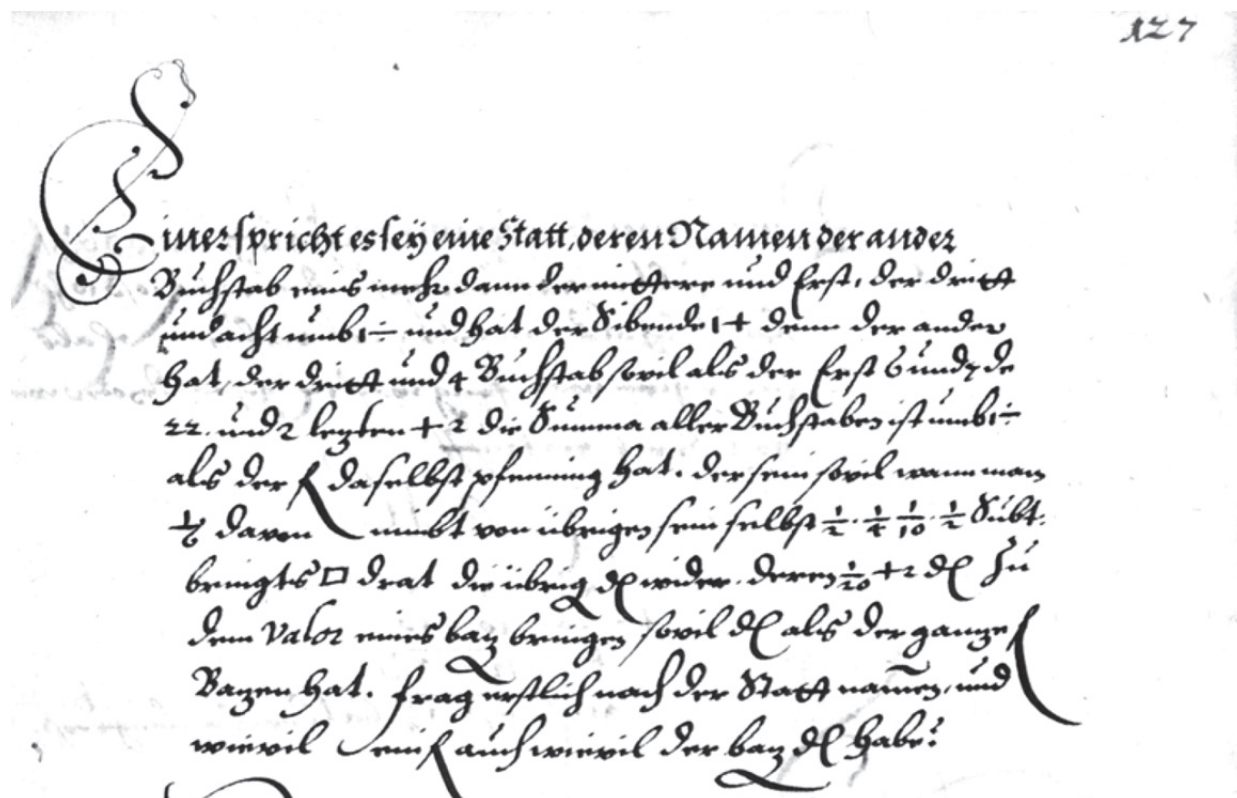 127
Einer spricht es sey eine Statt, deren Namen der ander
Buchstab eins mehr dann der mittere und Erst, der dritt
und acht umb 1 ÷ und hat der Sibende 1 + denn der ander
hat, der dritt und 4 Buchstab sovil als der Erst 6 und 7 de
22. und 2 lezten + 2 die Summa aller Buchstaben ist umb 1 ÷
als der f daselbst pfenning hat. der sein sovil wann man
davon nimbt von übrigen sein selbst 1/2 . 1/4 1/10 . 1/2 Subt:
bringts □ drat die übrig wider. deren 1/20 + 2 Zu
dem Valor eines baz bringen sovil als der ganze f
Bazen hat. frag erstlich nach der Statt namen, und
wievil ein f auch wievil der baz habe?